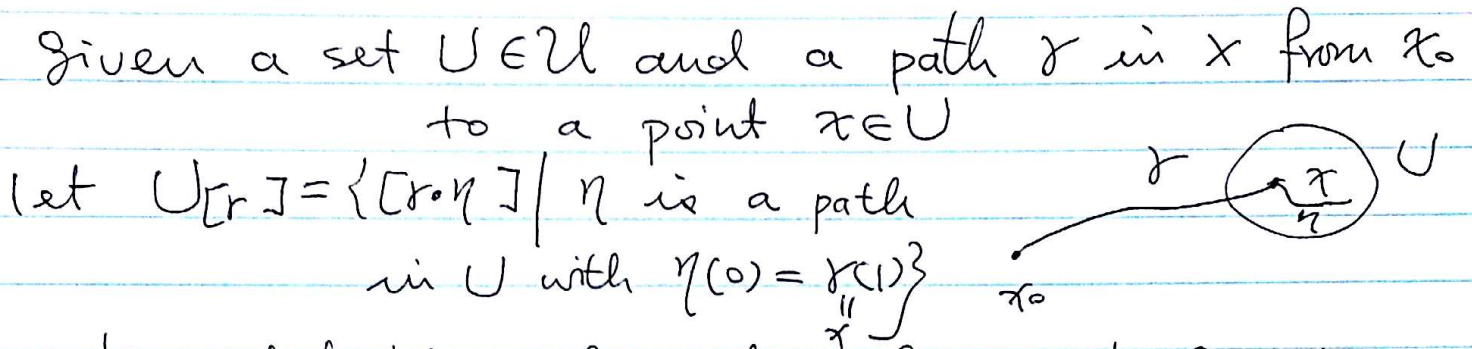 Given a set U ∈ 𝒰 and a path γ in X from x₀
to a point x ∈ U
let U[γ] = {[γ·η] | η is a path
in U with η(0) = γ(1)}
x
γ
U
x
η
x₀